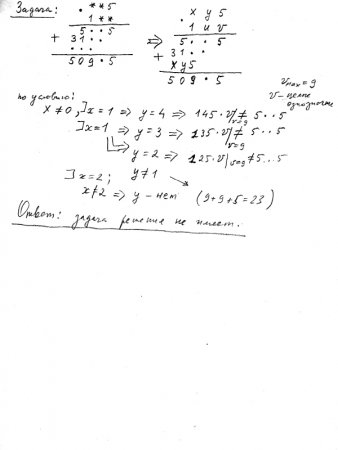 Задача:
. * * 5
1 * *
5 . . 5
+ 31 . .
. . .
5 0 9 . 5
⇒
x y 5
1 u v
5 . . 5
+ 31 . .
x y 5
5 0 9 . 5
v max = 9
v – целое
однозначн
по условию:
x ≠ 0, ∃ x = 1 ⇒ y = 4 ⇒ 145 · v|v=9 ≠ 5 . . 5
∃ x = 1 ⇒ y = 3 ⇒ 135 · v|v=9 ≠ 5 . . 5
y = 2 ⇒ 125 · v|v=9 ≠ 5 . . 5
∃ x = 2; y ≠ 1
x ≠ 2 ⇒ y – нет (9+9+5=23)
Ответ: задача решения не имеет.